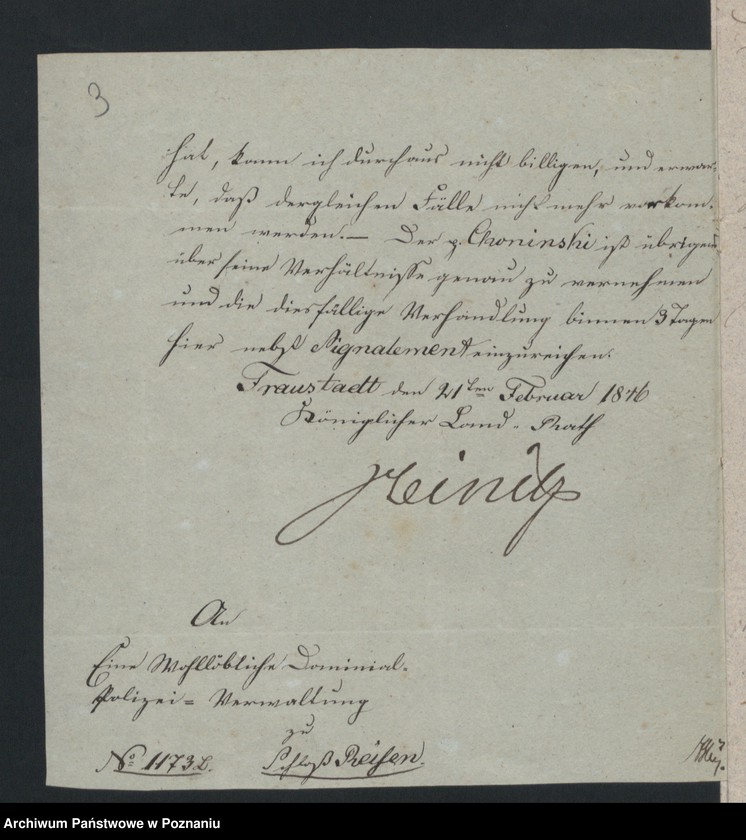 3
hat, kann ich durchaus nicht billigen, und erwar-
te, daß dergleichen Fälle nicht mehr vorkom-
men werden. — Der p. Chroninski ist übrigens
über seine Verhältnisse genau zu vernehmen
und die diesfällige Verhandlung binnen 3 Tagen
hier nebst Signalement einzureichen.
Fraustadt den 21ten Februar 1846
Königlicher Land-Rath
Heinitz
An
Eine Wohllöbliche Dominial-
Polizei-Verwaltung
zu
No 1173 L. Schloß Reisen.
Archiwum Państwowe w Poznaniu